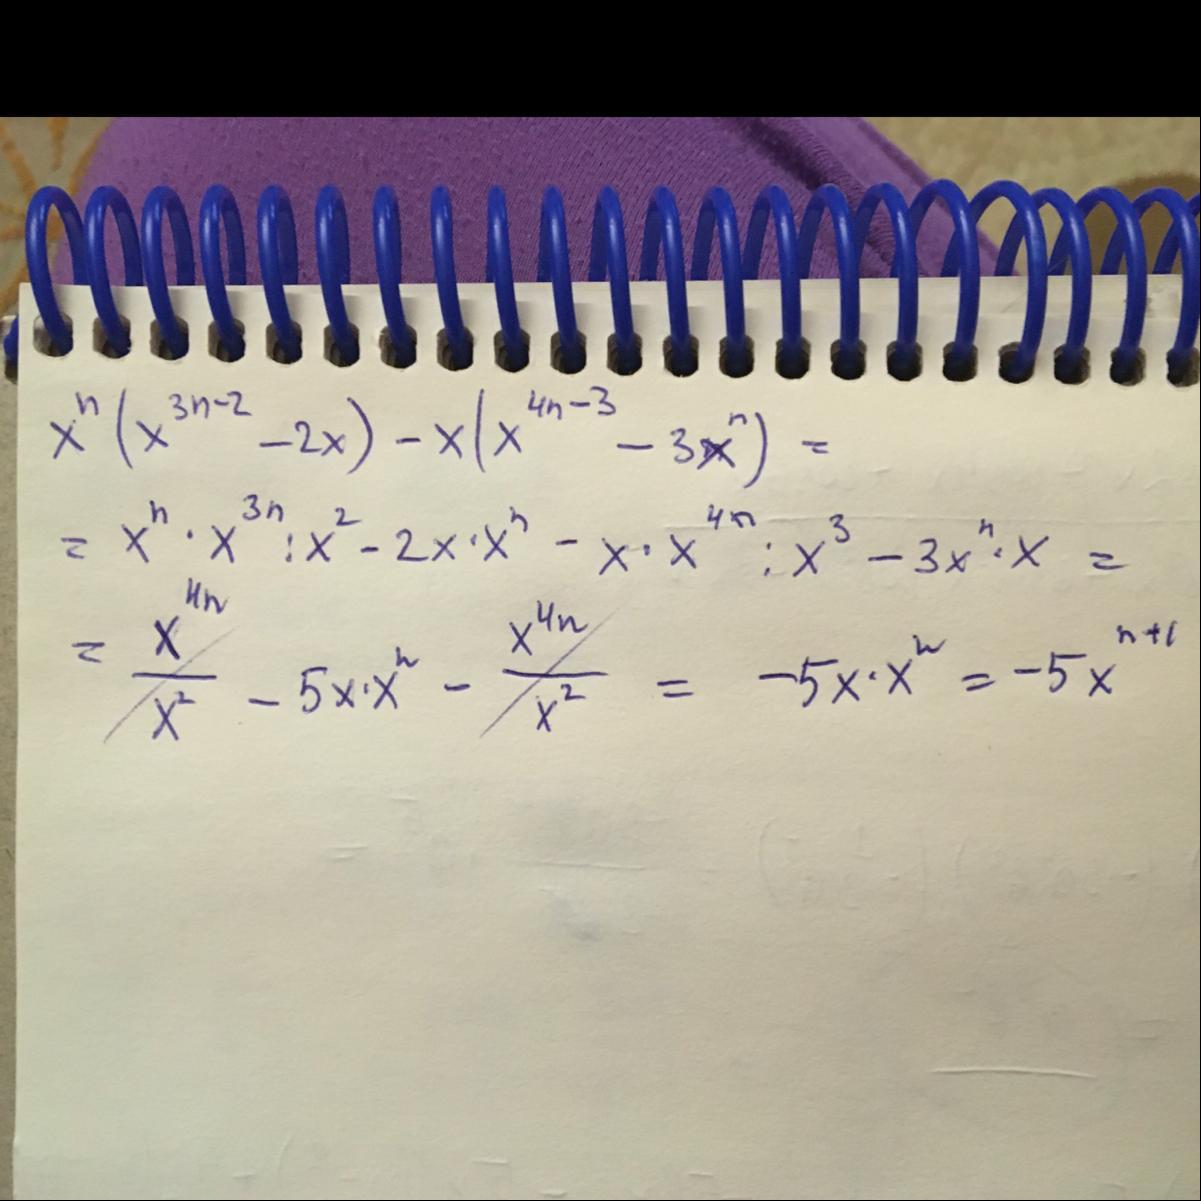 xⁿ(x³ⁿ⁻² - 2x) - x(x⁴ⁿ⁻³ - 3xⁿ) =
= xⁿ · x³ⁿ : x² - 2x · xⁿ - x · x⁴ⁿ : x³ - 3xⁿ · x =
= x⁴ⁿ/x² - 5x · xⁿ - x⁴ⁿ/x² = -5x · xⁿ = -5xⁿ⁺¹